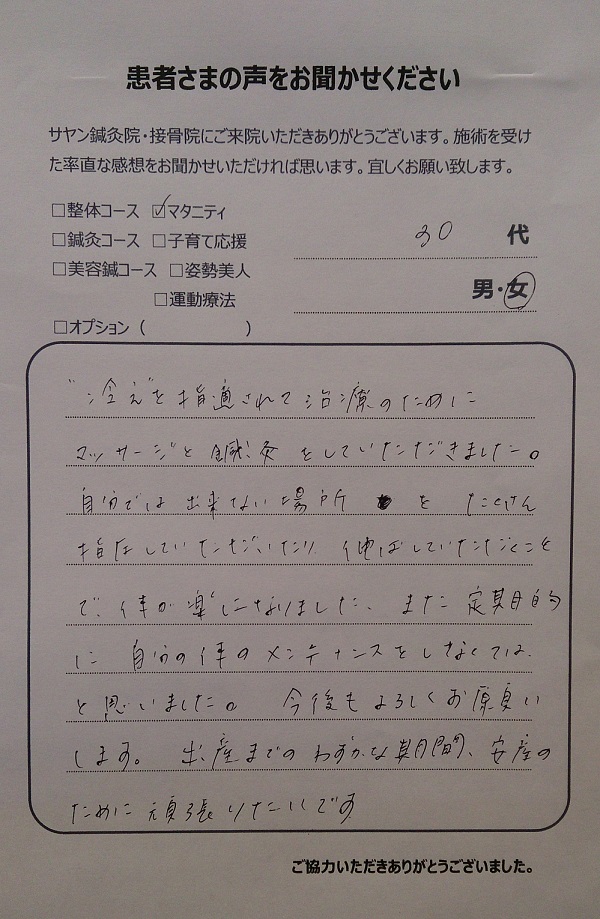 患者さまの声をお聞かせください
サヤン鍼灸院・接骨院にご来院いただきありがとうございます。施術を受け
た率直な感想をお聞かせいただければ思います。宜しくお願い致します。
□整体コース ☑マタニティ
□鍼灸コース □子育て応援
30 代
□美容鍼コース □姿勢美人
男・女
□運動療法
□オプション（ ）
"冷え"を指摘されて治療のために
マッサージと鍼灸をしていただきました。
自分では出来ない場所を たくさん
指圧していただいたり 伸ばしていただくこと
で、体が楽になりました、また定期的
に 自分の体のメンテナンスをしなくては、
と思いました。 今後もよろしくお願い
します。 出産までのわずかな期間、安産の
ために頑張りたいです
ご協力いただきありがとうございました。